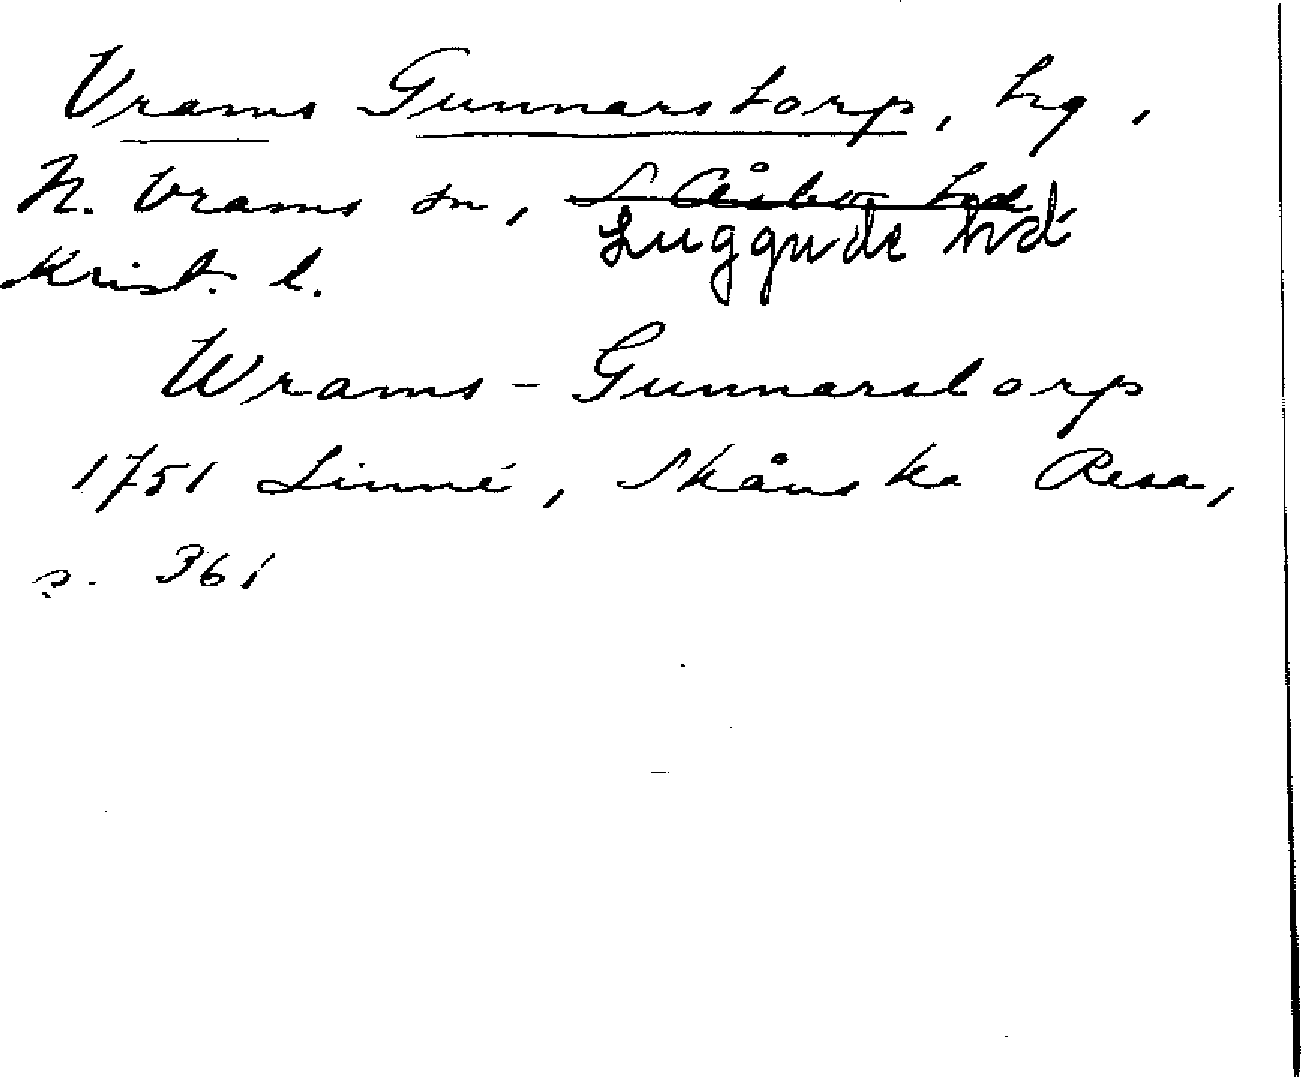 Vrams Gunnarstorp, hg,
N. Vrams sn, S Åsbo hd
Luggude hd
Krist. l.
Wrams-Gunnarstorp
1751 Linné, Skånska Resa,
s. 361